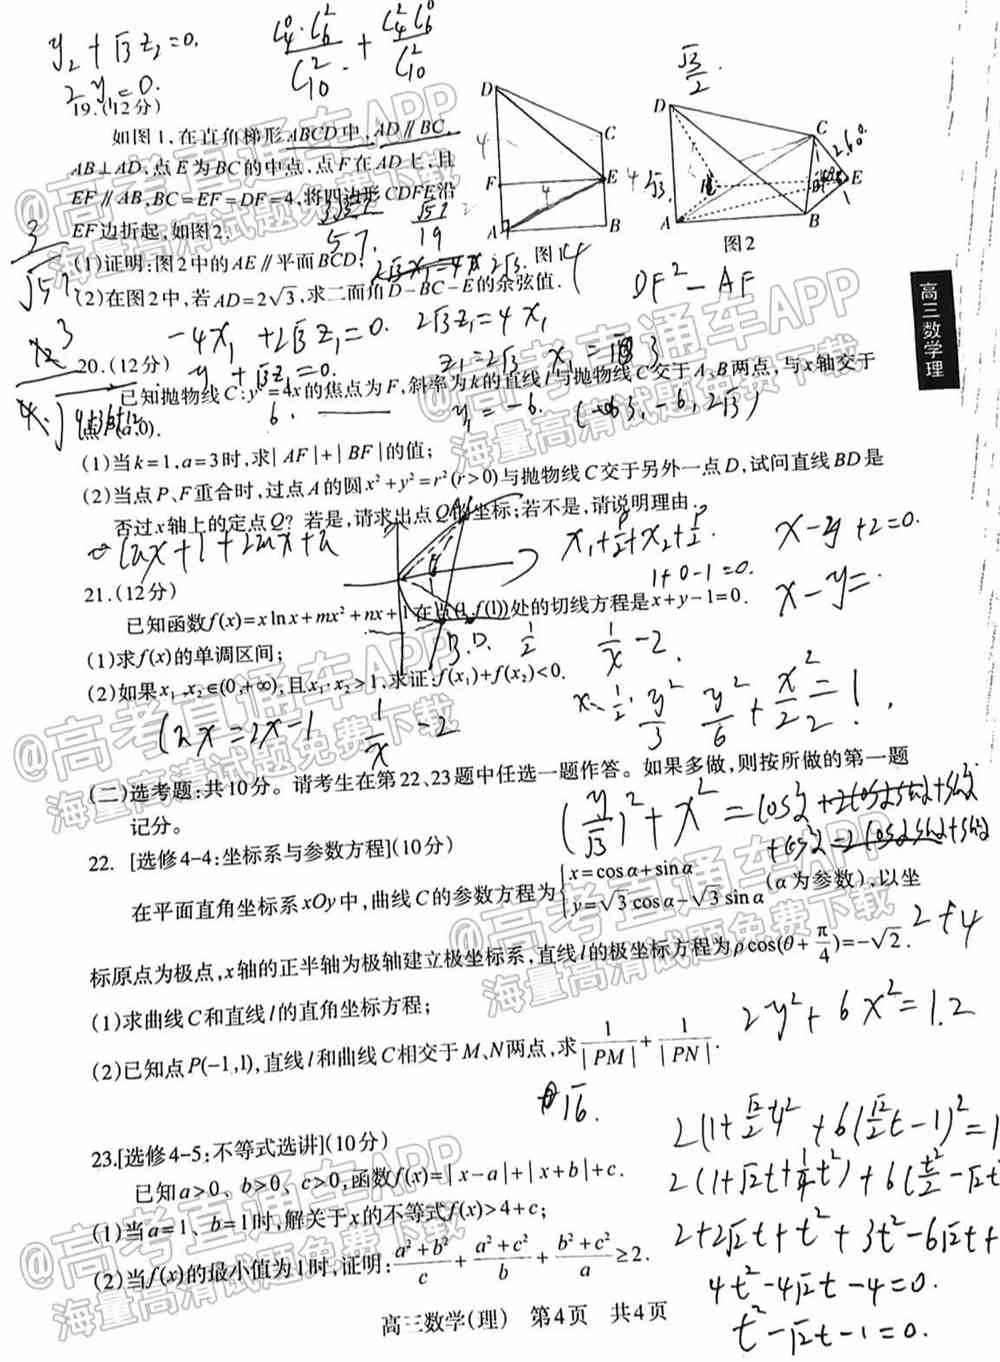 y₂+√3z₂=0.
2y₁=0.
C₄⁰·C₆²/C₁₀² + C₄²C₆⁰/C₁₀²
√3/2
19.(12分)
如图1,在直角梯形ABCD中,AD∥BC,
AB⊥AD,点E为BC的中点,点F在AD上,且
EF∥AB,BC=EF=DF=4,将四边形CDFE沿
EF边折起,如图2.
(1)证明:图2中的AE∥平面BCD;
(2)在图2中,若AD=2√3,求二面角D-BC-E的余弦值.
D
C
F
E
A
B
图1
D
C
E
A
B
图2
DF²-AF
-4x₁+2√3z₁=0. 2√3z₁=4x₁
y+√3z=0.
y₁=-6.
高三数学理
20.(12分)
已知抛物线C:y²=4x的焦点为F,斜率为k的直线l与抛物线C交于A、B两点,与x轴交于
点P(a,0).
(1)当k=1,a=3时,求|AF|+|BF|的值;
(2)当点P、F重合时,过点A的圆x²+y²=r²(r>0)与抛物线C交于另外一点D,试问直线BD是
否过x轴上的定点Q?若是,请求出点Q的坐标;若不是,请说明理由.
x₁+p/2+x₂+p/2.
x-y+2=0.
1+0-1=0.
x-y=
21.(12分)
已知函数f(x)=xlnx+mx²+nx+1在点(1,f(1))处的切线方程是x+y-1=0.
(1)求f(x)的单调区间;
(2)如果x₁、x₂∈(0,+∞),且x₁·x₂>1,求证:f(x₁)+f(x₂)<0.
1/x-2.
lnx=2x-1 1/x-2
y²/6+x²/2=1.
(二)选考题:共10分。请考生在第22、23题中任选一题作答。如果多做,则按所做的第一题
记分。
22. [选修4-4:坐标系与参数方程](10分)
在平面直角坐标系xOy中,曲线C的参数方程为{x=cosα+sinα y=√3cosα-√3sinα (α为参数),以坐
标原点为极点,x轴的正半轴为极轴建立极坐标系,直线l的极坐标方程为ρcos(θ+π/4)=-√2.
2+4
(1)求曲线C和直线l的直角坐标方程;
(2)已知点P(-1,1),直线l和曲线C相交于M、N两点,求1/|PM|+1/|PN|.
2y²+6x²=12
√6.
23.[选修4-5:不等式选讲](10分)
已知a>0、b>0、c>0,函数f(x)=|x-a|+|x+b|+c.
(1)当a=1、b=1时,解关于x的不等式f(x)>4+c;
(2)当f(x)的最小值为1时,证明:(a²+b²)/c+(a²+c²)/b+(b²+c²)/a≥2.
2(1+√2/2t)²+6(√2/2t-1)²=1
2+2√2t+t²+3t²-6√2t+
4t²-4√2t-4=0.
t²-√2t-1=0.
高三数学(理) 第4页 共4页
@高考直通车APP
海量高清试题免费下载
@高考直通车APP
海量高清试题免费下载
@高考直通车APP
海量高清试题免费下载
@高考直通车APP
海量高清试题免费下载
@高考直通车APP
海量高清试题免费下载